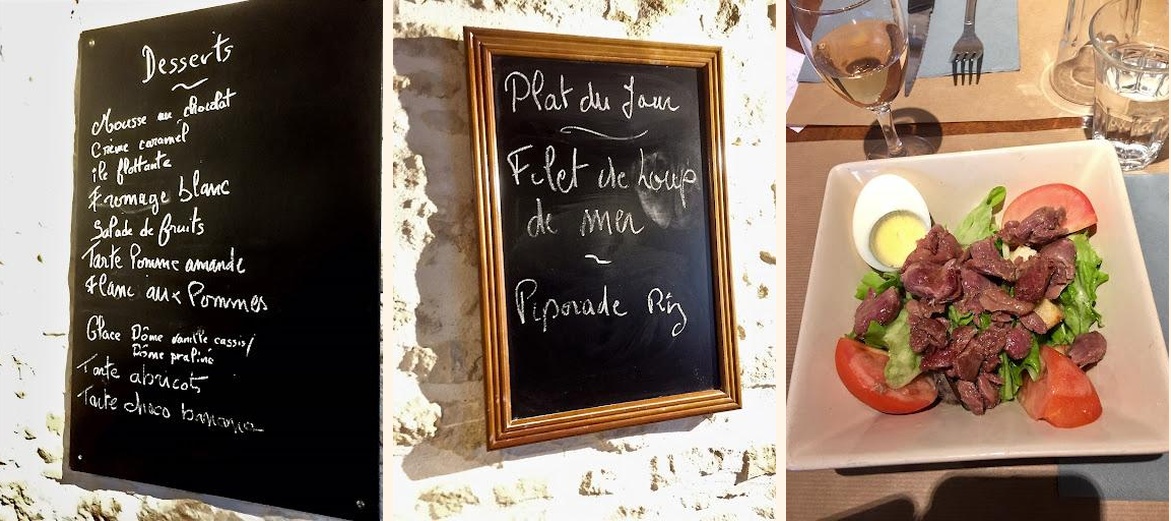 Desserts
Mousse au chocolat
Crème caramel
île flottante
Fromage blanc
Salade de fruits
Tarte Pomme amande
Flanc aux Pommes
Glace Dôme vanille cassis/
Dôme praliné
Tarte abricots
Tarte choco banane
Plat du Jour
Filet de Loup
de mer
Piporade Riz